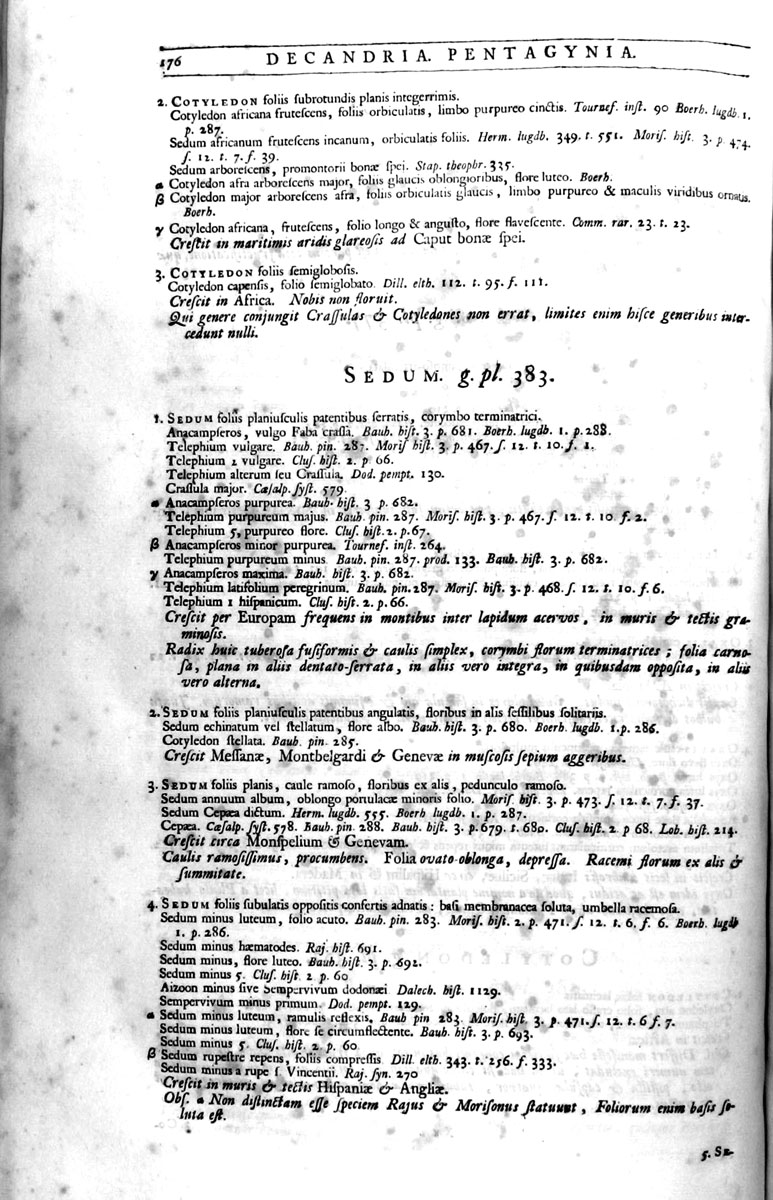 176 DECANDRIA. PENTAGYNIA.
2. COTYLEDON foliis subrotundis planis integerrimis.
Cotyledon africana frutescens, foliis orbiculatis, limbo purpureo cinctis. Tournef. inst. 90 Boerh. lugdb. 1.
p. 287.
Sedum africanum frutescens incanum, orbiculatis foliis. Herm. lugdb. 349. t. 551. Moris. hist. 3. p. 474.
s. 12. t. 7. f. 39.
Sedum arborescens, promontorii bonæ spei. Stap. theophr. 335.
α Cotyledon afra arborescens major, foliis glaucis oblongioribus, flore luteo. Boerh.
β Cotyledon major arborescens afra, foliis orbiculatis glaucis, limbo purpureo & maculis viridibus ornatis.
Boerh.
γ Cotyledon africana, frutescens, folio longo & angusto, flore flavescente. Comm. rar. 23. t. 23.
Crescit in maritimis aridis glareosis ad Caput bonæ spei.
3. COTYLEDON foliis semiglobosis.
Cotyledon capensis, folio semiglobato. Dill. elth. 112. t. 95. f. 111.
Crescit in Africa. Nobis non floruit.
Qui genere conjungit Crassulas & Cotyledones non errat, limites enim hisce generibus inter-
cedunt nulli.
SEDUM. g. pl. 383.
1. SEDUM foliis planiusculis patentibus serratis, corymbo terminatrici.
Anacampseros, vulgo Faba crassa. Bauh. hist. 3. p. 681. Boerh. lugdb. 1. p. 288.
Telephium vulgare. Bauh. pin. 287. Moris hist. 3. p. 467. s. 12. t. 10. f. 1.
Telephium 2 vulgare. Clus. hist. 2. p 66.
Telephium alterum seu Crassula. Dod. pempt. 130.
Crassula major. Cæsalp. syst. 579
α Anacampseros purpurea. Bauh. hist. 3 p. 682.
Telephium purpureum majus. Bauh. pin. 287. Moris. hist. 3. p. 467. s. 12. t. 10 f. 2.
Telephium 5, purpureo flore. Clus. hist. 2. p. 67.
β Anacampseros minor purpurea. Tournef. inst. 264.
Telephium purpureum minus Bauh. pin. 287. prod. 133. Bauh. hist. 3. p. 682.
γ Anacampseros maxima. Bauh. hist. 3. p. 682.
Telephium latifolium peregrinum. Bauh. pin. 287. Moris. hist. 3. p. 468. s. 12. t. 10. f. 6.
Telephium 1 hispanicum. Clus. hist. 2. p. 66.
Crescit per Europam frequens in montibus inter lapidum acervos, in muris & tectis gra-
minosis.
Radix huic tuberosa fusiformis & caulis simplex, corymbi florum terminatrices; folia carno-
sa, plana in aliis dentato-serrata, in aliis vero integra, in quibusdam opposita, in aliis
vero alterna.
2. SEDUM foliis planiusculis patentibus angulatis, floribus in alis sessilibus solitariis.
Sedum echinatum vel stellatum, flore albo. Bauh. hist. 3. p. 680. Boerh. lugdb. 1. p. 286.
Cotyledon stellata. Bauh. pin. 285.
Crescit Messanæ, Montbelgardi & Genevæ in muscosis sepium aggeribus.
3. SEDUM foliis planis, caule ramoso, floribus ex alis, pedunculo ramoso.
Sedum annuum album, oblongo portulacæ minoris folio. Moris. hist. 3. p. 473. s. 12. t. 7. f. 37.
Sedum Cepæa dictum. Herm. lugdb. 555. Boerh lugdb. 1. p. 287.
Cepæa. Cæsalp. syst. 578. Bauh. pin. 288. Bauh. hist. 3. p. 679. t. 680. Clus. hist. 2 p 68. Lob. hist. 214.
Crescit circa Monspelium & Genevam.
Caulis ramosissimus, procumbens. Folia ovato-oblonga, depressa. Racemi florum ex alis &
summitate.
4. SEDUM foliis subulatis oppositis confertis adnatis: basi membranacea soluta, umbella racemosa.
Sedum minus luteum, folio acuto. Bauh. pin. 283. Moris. hist. 2. p. 471. s. 12. t. 6. f. 6. Boerh. lugdb
1. p. 286.
Sedum minus hæmatodes. Raj. hist. 691.
Sedum minus, flore luteo. Bauh. hist. 3. p. 692.
Sedum minus 5. Clus. hist. 2 p. 60
Aizoon minus sive Sempervivum dodonæi Dalech. hist. 1129.
Sempervivum minus primum. Dod. pempt. 129.
α Sedum minus luteum, ramulis reflexis. Bauh pin 283. Moris. hist. 3. p. 471. s. 12. t. 6 f. 7.
Sedum minus luteum, flore se circumflectente. Bauh. hist. 3. p. 693.
Sedum minus 5. Clus. hist. 2. p. 60
β Sedum rupestre repens, foliis compressis Dill. elth. 343. t. 256. f. 333.
Sedum minus a rupe s. Vincentii. Raj. syn. 270
Crescit in muris & tectis Hispaniæ & Angliæ.
Obs. α Non distinctam esse speciem Rajus & Morisonus statuunt, Foliorum enim basis so-
luta est.
5. SE-